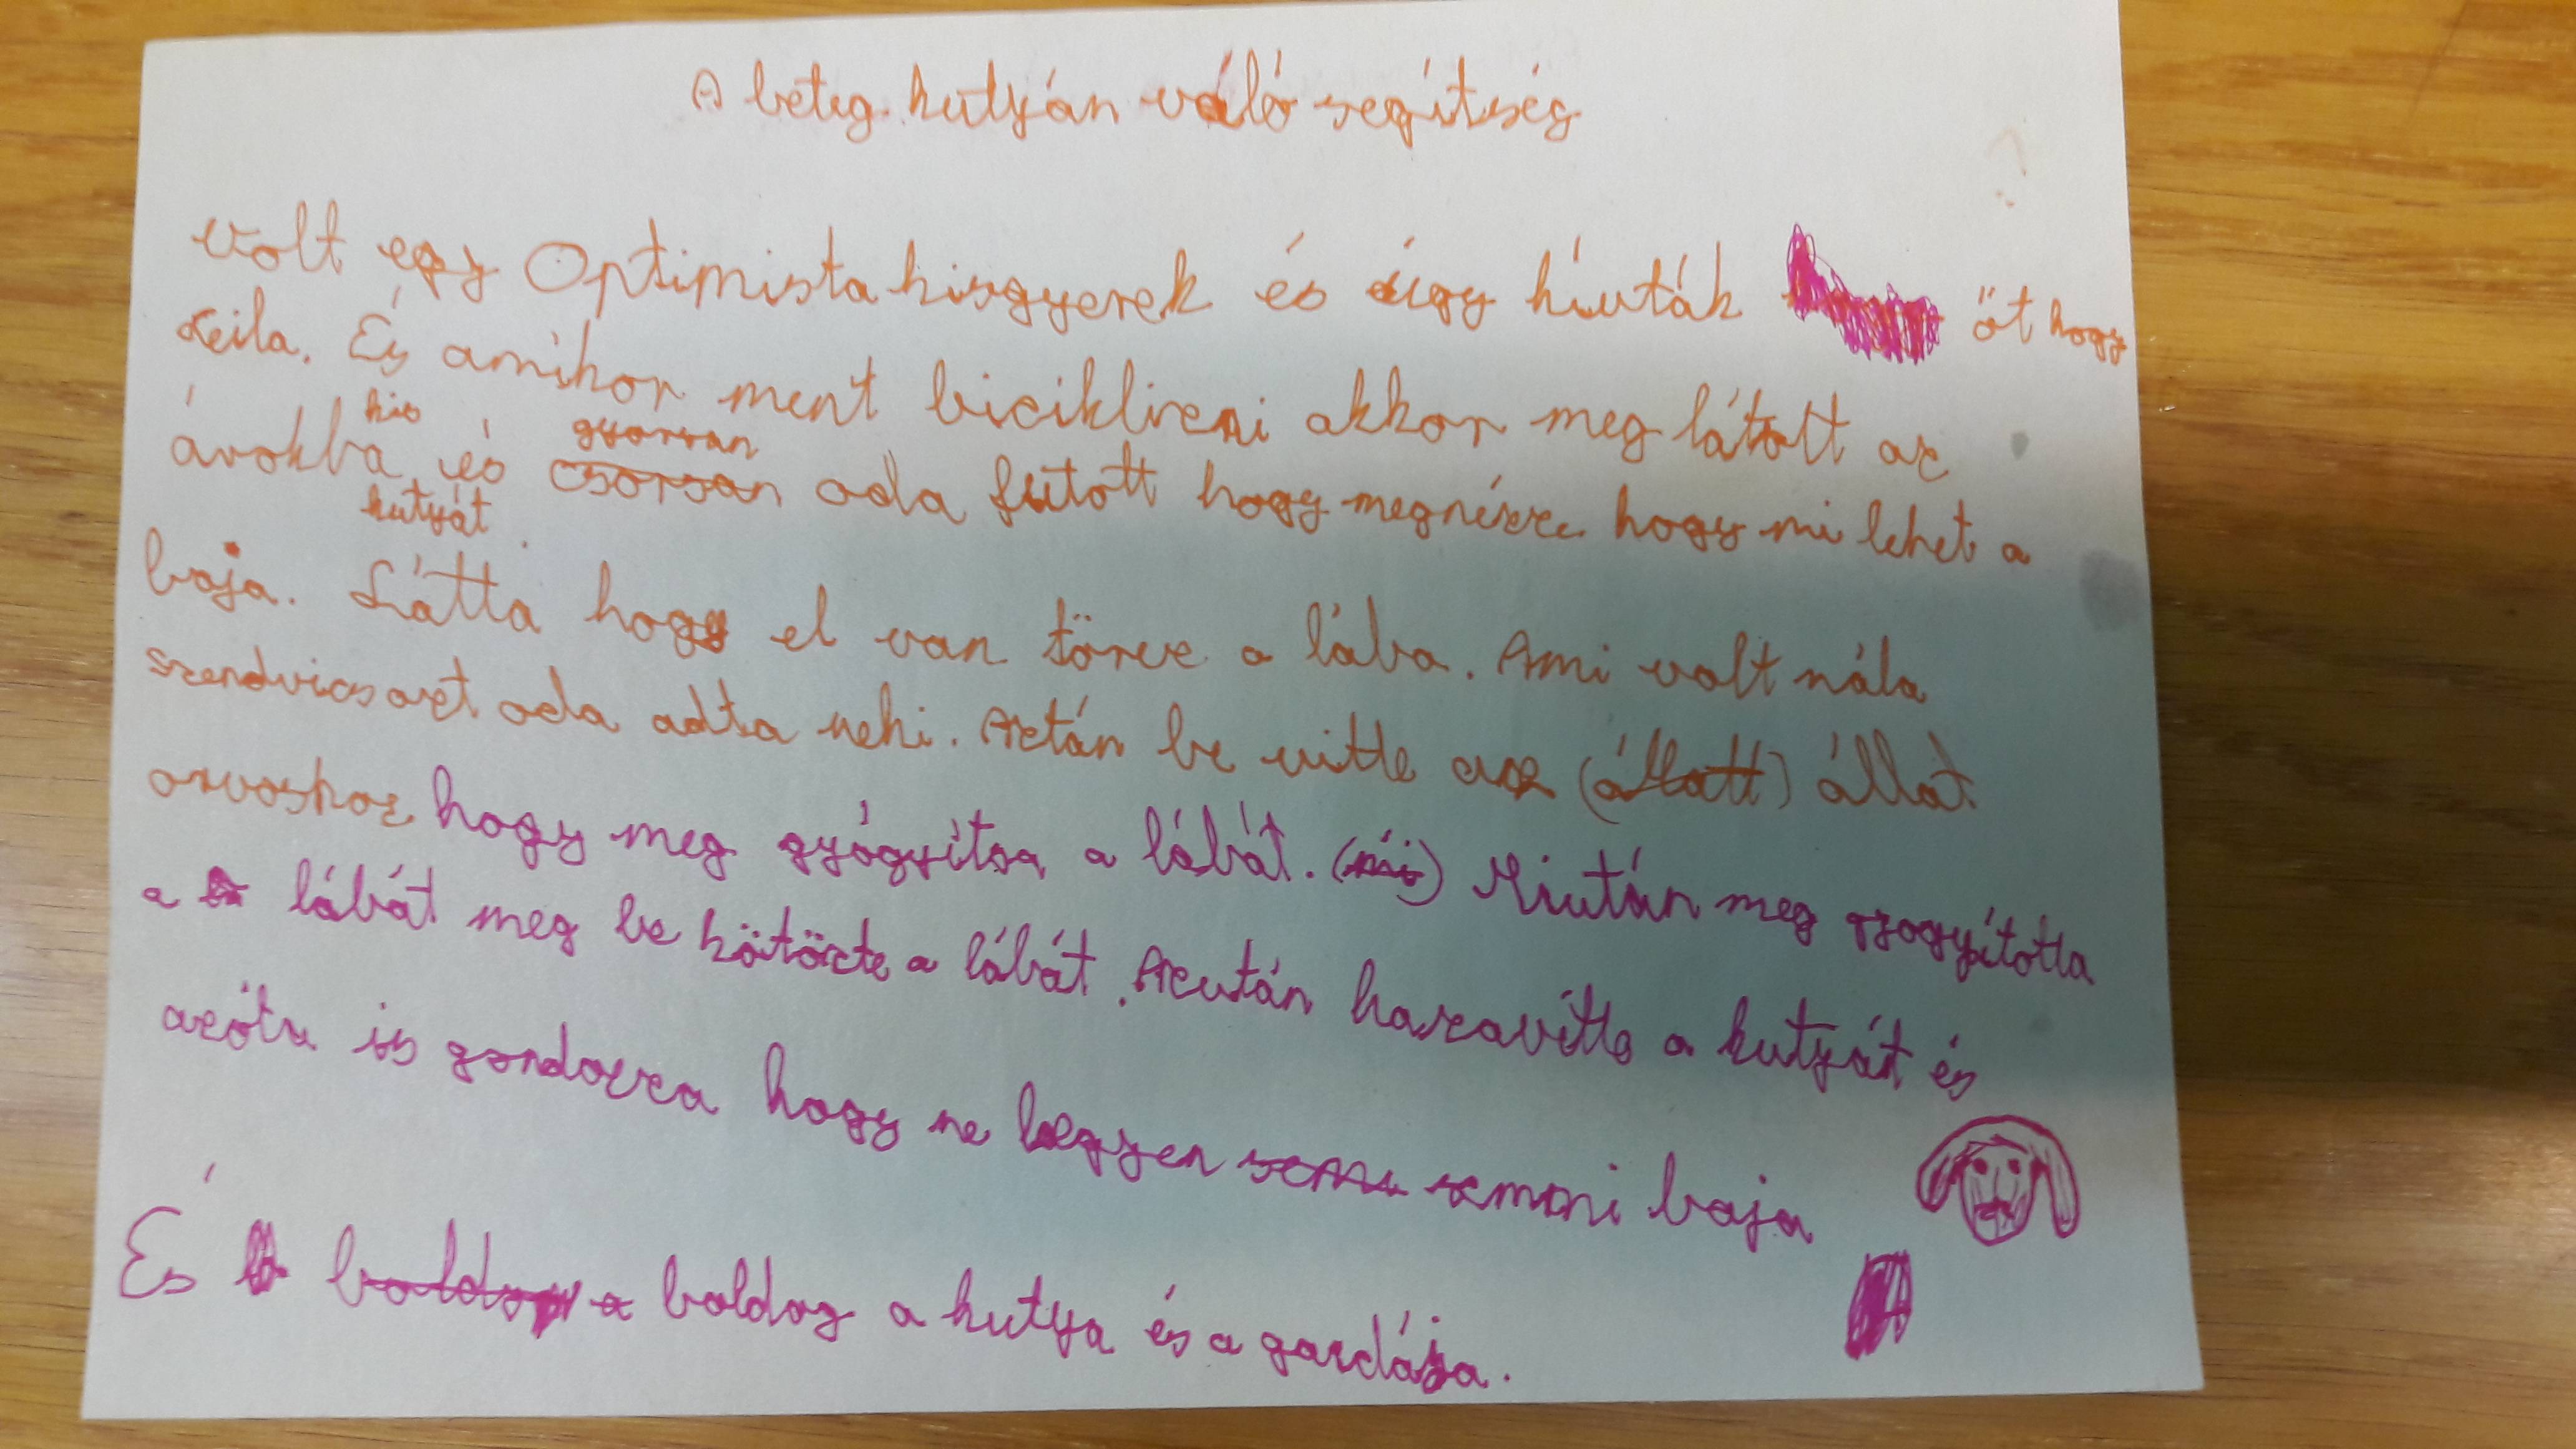 A beteg kutyán váló segítség
Volt egy Optimista kisgyerek és úgy hívták őt hogy
Keila. És amikor ment biciklizni akkor meg látott az
árokba kis kutyát és gyorsan oda futott hogy megnézze hogy mi lehet a
baja. Látta hogy el van törve a lába. Ami volt nála
szendvics azt oda adta neki. Aztán be vitte az (állatt) állat
orvoshoz hogy meg gyógyítsa a lábát. Miután meg gyogyította
a lábát meg be kötözte a lábát. Azután hazavitte a kutyát és
azóta is gondozza hogy ne legyen semmi baja
És boldog a kutya és a gazdája.